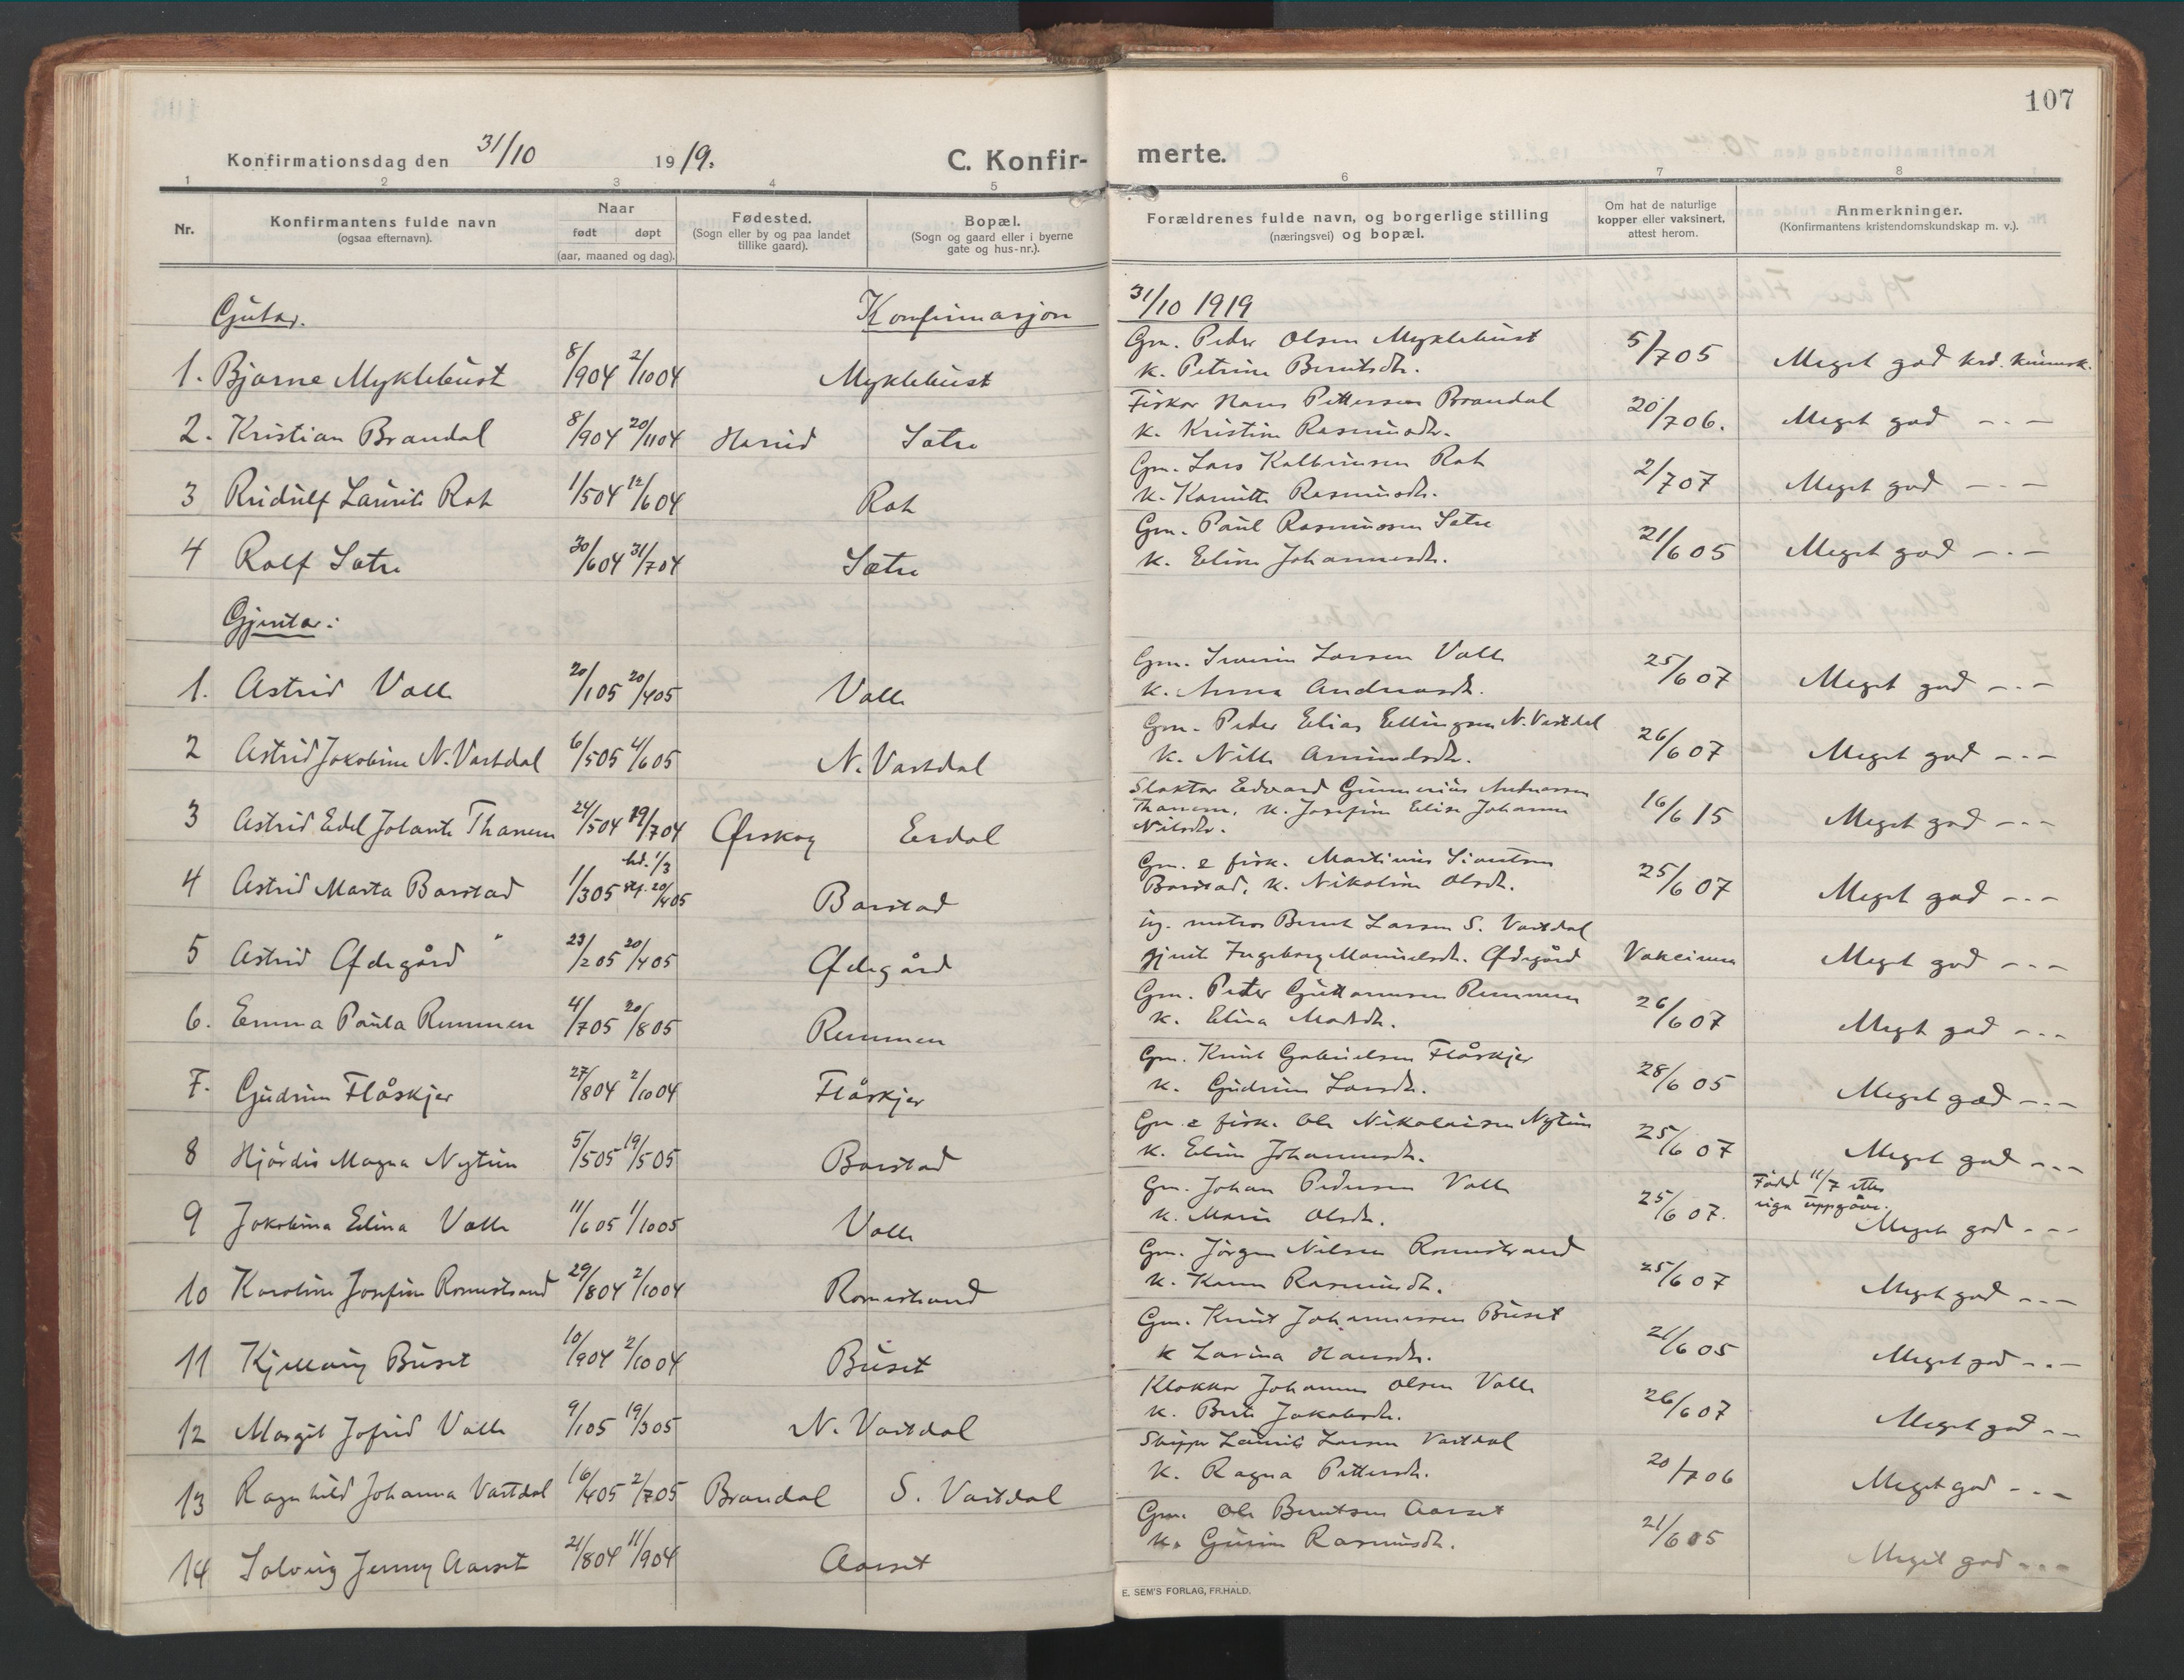 107
Konfirmationsdag den 31/10 1919.
C. Konfir-
merte.
1 2 3 4 5 6 7 8
Nr.
Konfirmantens fulde navn
(ogsaa efternavn).
Naar
født døpt
(aar, maaned og dag).
Fødested.
(Sogn eller by og paa landet
tillike gaard).
Bopæl.
(Sogn og gaard eller i byerne
gate og hus-nr.).
Forældrenes fulde navn, og borgerlige stilling
(næringsvei) og bopæl.
Om hat de naturlige
kopper eller vaksinert,
attest herom.
Anmerkninger.
(Konfirmantens kristendomskundskap m. v.).
Gutar. Konfirmasjon 31/10 1919
1. Bjarne Myklebust 8/904 2/1004 Myklebust
Gm. Peder Olsen Myklebust
k. Petrine Berntsdtr.
5/705 Meget god krd. kunnsk.
2. Kristian Brandal 8/904 20/1104 Harid Sætre
Fiskar Hans Pettersen Brandal
k. Kristine Rasmusdtr.
20/706. Meget god - . -
3 Rudulf Laurits Rot 1/504 12/604 Rot
Gm. Lars Kolbeinsen Rot
k. Rasmusdtr.
2/707 Meget god - . -
4 Rolf Sætre 30/604 31/704 Sætre
Gm. Paul Rasmussen Sætre
k. Eline Johannesdtr.
21/605 Meget god - . -
Gjentar:
1. Astrid Valle 20/105 20/405 Valle
Gm. Severin Larsen Valle
k. Anna Andreasdtr.
25/607 Meget god - . -
2 Astrid Jakobine N. Vartdal 6/505 4/605 N. Vartdal
Gm. Peder Elias Ellingsen N. Vartdal
k. Nille Amundsdtr.
26/607 Meget god - . -
3 Astrid Edel Jolante Thanem 24/504 19/704 Ørskog Erdal
Slaktar Edvard Gunnerius Antonsen
Thanem, k. Josefine Elise Johanne
Nilsdtr.
16/615 Meget god - . -
4 Astrid Marta Barstad 1/305 hd. 1/3 stf. 20/405 Barstad
Gm. e fisk. Martinus Sivertsen
Barstad, k. Nikoline Olsdtr.
25/607 Meget god - . -
5 Astrid Ødegård " 23/205 20/405 Ødegård
ug. matros Bernt Larsen S. Vartdal
gjent Ingeborg Manuelsdtr. Ødegård
Meget god - . -
6. Emma Paula Remmen 4/705 20/805 Remmen
Gm. Peter Guttormsen Remmen
k. Elina Madsdtr.
26/607 Meget god - . -
7. Gudrun Flåskjer 27/804 2/1004 Flåskjer
Gm. Knut Gabrielsen Flåskjer
k. Gudrun Larsdtr.
28/605 Meget god - . -
8 Hjördis Magna Nytun 5/505 19/505 Barstad
Gm. e fisk. Ole Nikolaisen Nytun
k. Eline Johannesdtr.
25/607 Meget god - . -
9 Jakobina Edina Valle 11/605 1/1005 Valle
Gm. Johan Pedersen Valle
k. Marie Olsdtr.
25/607. Född 11/7 etter
eiga uppgåve.
Meget god - . -
10 Karoline Josefine Romestrand 29/804 2/1004 Romestrand
Gm. Jörgen Nilsen Romestrand
k. Karen Rasmusdtr.
25/607 Meget god - . -
11 Kjellaug Buset 10/904 2/1004 Buset
Gm. Knut Johannessen Buset
k Lavina Hansdtr.
21/605 Meget god - . -
12 Margit Jofrid Valle 9/105 19/305 N. Vartdal
Klokkar Johannes Olsen Valle
k. Berte Jakobsdtr.
26/607 Meget god - . -
13 Ragnhild Johanna Vartdal 16/405 2/705 Brandal S. Vartdal
Skipper Laurits Larsen Vartdal
k. Ragna Pettersdtr.
20/706 Meget god - . -
14 Solveig Jenny Aarset 21/804 11/904 Aarset
Gm. Ole Berntsen Aarset
k. Gurine Rasmusdtr.
21/605 Meget god - . -
E. SEM'S FORLAG, FR.HALD.